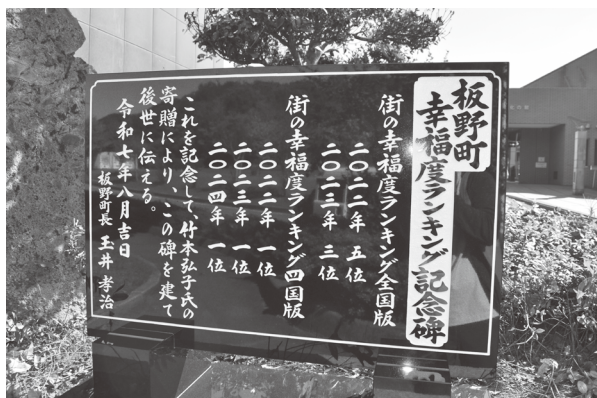 板野町
幸福度ランキング記念碑
街の幸福度ランキング全国版
二〇二二年 五位
二〇二三年 三位
街の幸福度ランキング四国版
二〇二二年 一位
二〇二三年 一位
二〇二四年 一位
これを記念して、竹本弘子氏の
寄贈により、この碑を建て
後世に伝える。
令和七年八月吉日
板野町長 玉井孝治